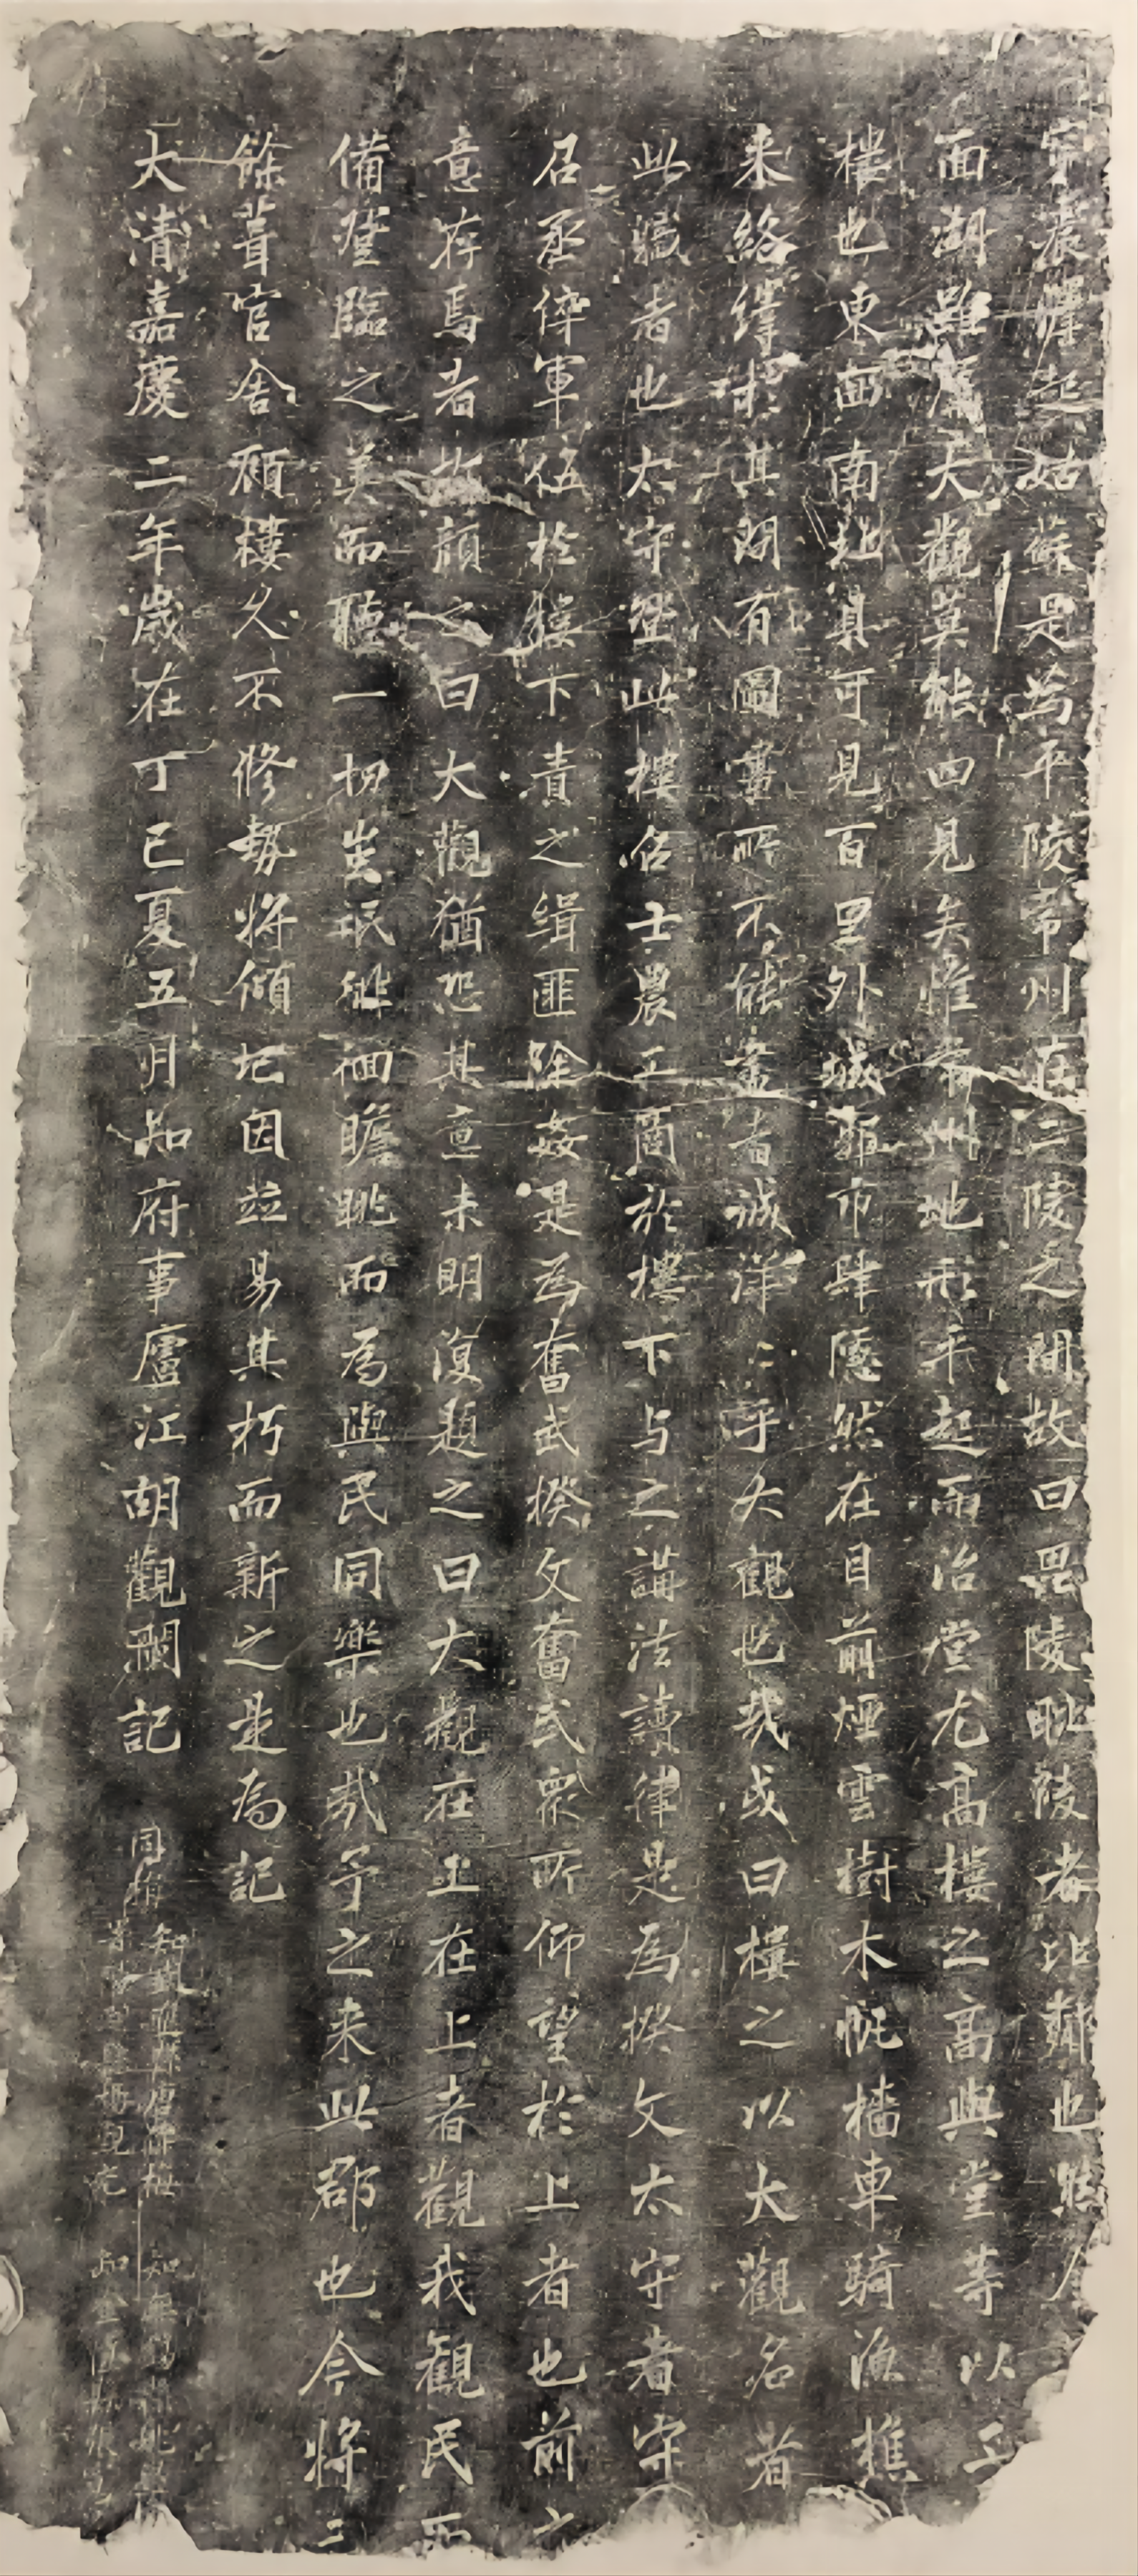 起姑蘇是為平陵常州在二陵之間故曰毘陵毗陵者比
面湖雖大觀莫能四見矣惟常州地形平起而治堂尤高樓之高與堂等以
樓也東西南北具可見百里外城郭市肆隱然在目前煙雲樹木帆檣車騎漁樵
来絡繹於其間有圖畫所不能盡者誠洋〻乎大觀也哉或曰樓之以大觀名者
此臧者也太守登此樓召士農工商於樓下与之講法讀律是為揆文太守者守
召丞倅軍伍於樓下責之緝匪除姦是為奮武揆文奮武眾所仰望於上者也前之
意存焉者此顏之曰大觀猶恐其意未明復題之曰大觀在上在上者觀我觀民而
備登臨之美而聽一切蚩氓徘徊瞻眺而為與民同樂也哉予之来此郡也今將三
餘葺官舍顧樓久不修勢將傾圮因並易其朽而新之是為記
大清嘉慶二年歲在丁巳夏五月知府事廬江胡觀瀾記